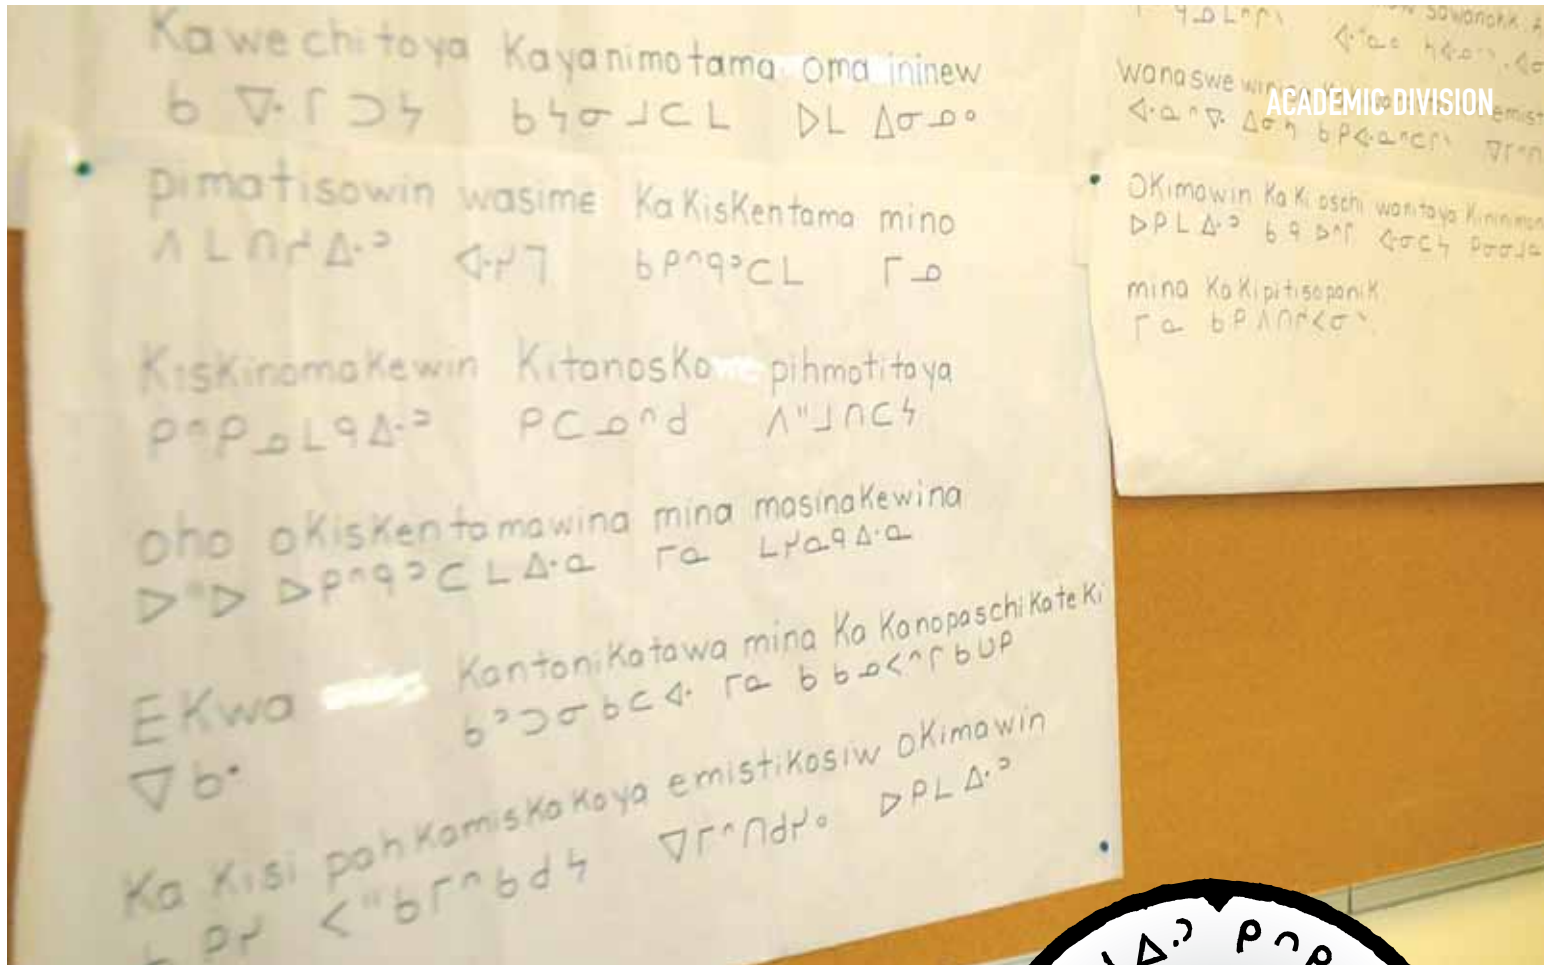 Kawechitoya Kayanimotama oma ininew
ᑲ ᐁᐧᒋᑐᔭ ᑲᔭᓂᒧᑕᒪ ᐅᒪ ᐃᓂᓄᐤ
pimatisowin wasime KaKisKentama mino
ᐱᒪᑎᓱᐃᐧᐣ ᐊᐧᓯᒣ ᑲᑭᐢᑫᐣᑕᒪ ᒥᓄ
KisKinamaKewin KitanosKowe pihmotitaya
ᑭᐢᑭᓄᒪᑫᐃᐧᐣ ᑭᑕᓄᐢᑯ ᐱᐦᒧᑎᑕᔭ
oho oKisKentamawina mina masinaKewina
ᐅᐦᐅ ᐅᑭᐢᑫᐣᑕᒪᐃᐧᓇ ᒥᓇ ᒪᓯᓇᑫᐃᐧᓇ
EKwa KantoniKatawa mina Ka KanopaschiKateKi
ᐁᑲᐧ ᑲᐣᑐᓂᑲᑕᐊᐧ ᒥᓇ ᑲ ᑲᓄᐸᐢᒋᑲᑌᑭ
Ka Kisi pahKamisKaKoya emistiKosiw oKimawin
ᑭᓯ ᐸᐦᑲᒥᐢᑲᑯᔭ ᐁᒥᐢᑎᑯᓯᐤ ᐅᑭᒪᐃᐧᐣ
wanaswewin
ACADEMIC DIVISION
ᐊᐧᓇᐢᐁᐧ ᐃᓂᓴ
OKimawin KaKi oschi wanitaya
ᐅᑭᒪᐃᐧᐣ ᑲᑫ ᐅᐢᒋ ᐊᐧᓂᑕᔭ
mina KaKipitisopaniK
ᒥᓇ ᑲᑭᐱᑎᓱᐸᓂᐠ